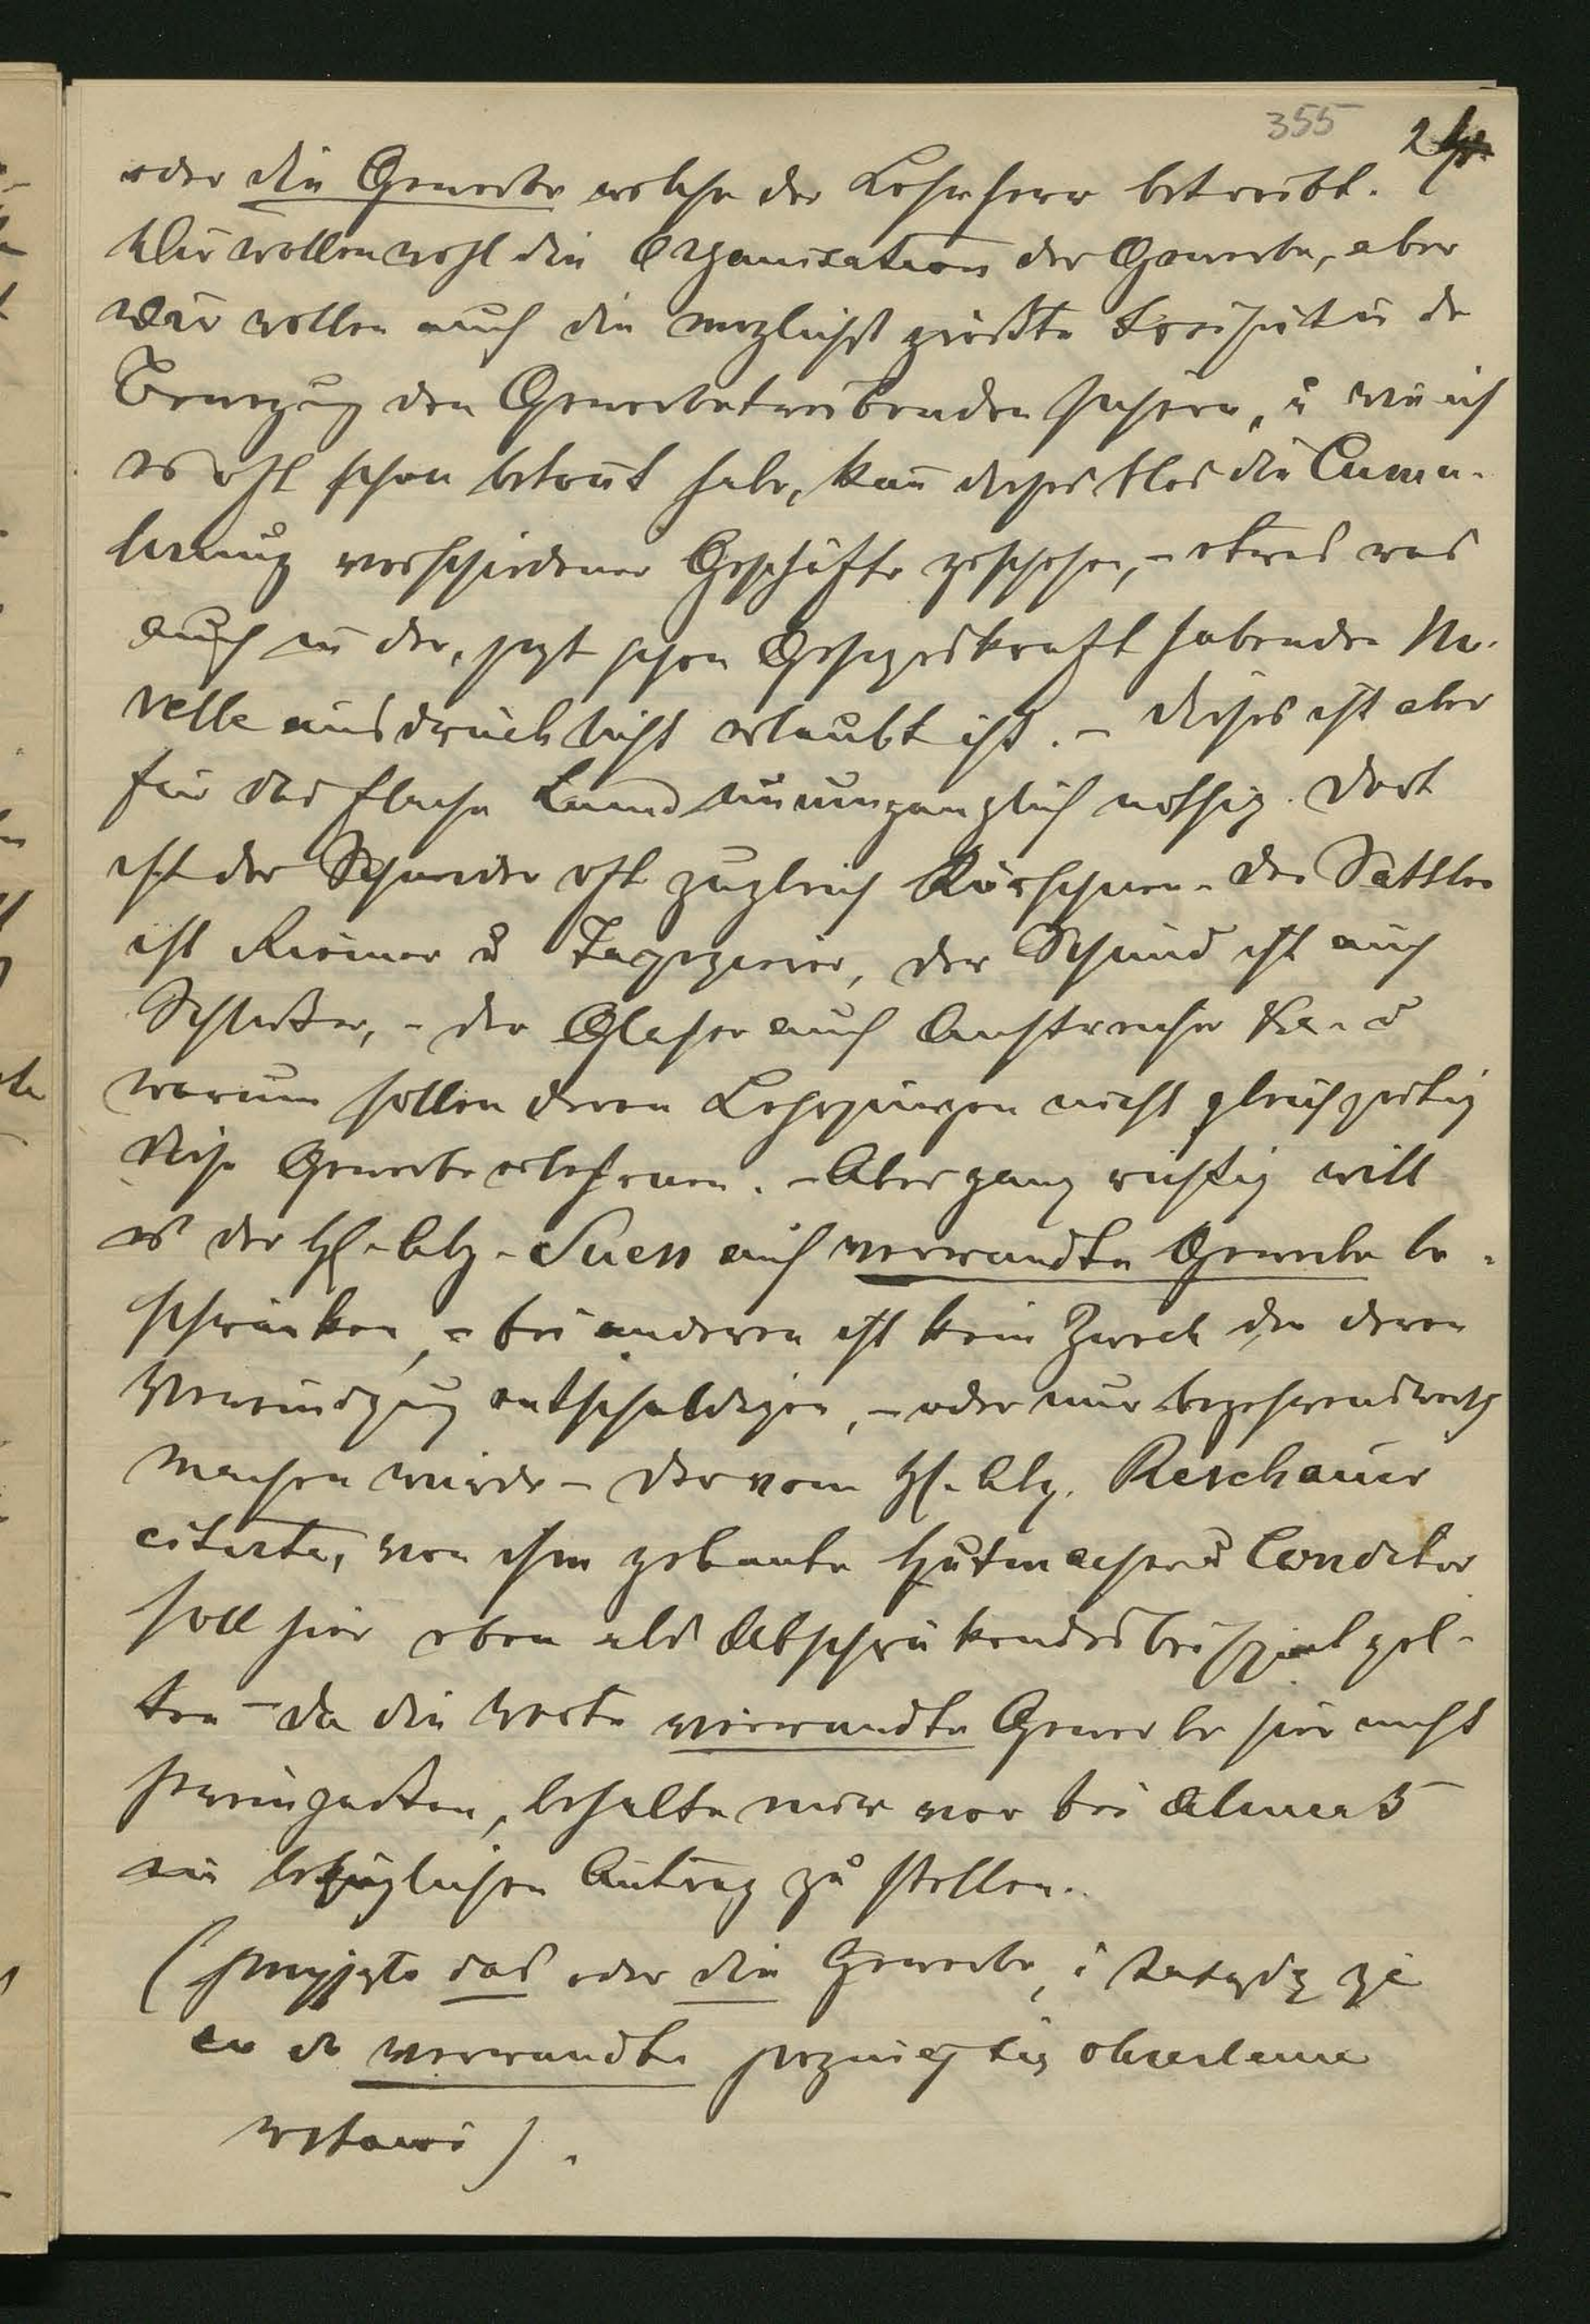 355 24.
oder die Gewerbe welche der Lehrherr betreibt.
Wir wollen wohl die Organisation der Gewerbe, aber
wir wollen auch die möglichst größte Freiheit in de
Bewegug den Gewerbetreibenden sichern, u wie ich
es oft schon betont habe, kan dieses blos die Cumu-
lirung verschiedener Geschäfte geschehen, – etwas was
auch in der, jezt schon Gesezeskraft habenden No-
velle ausdrücklichst erlaubt ist. – Dieses ist aber
für das flache Land unumganglich nöthig. Dort
ist der Schneider oft zugleich Kürschner – der Sattler
ist Riemer u Tapezierer, der Schmid ist auch
Schloßer, – der Glaser auch Anstreicher &c. – u
warum sollen deren Lehrjungen nicht gleichzeitig
diese Gewerbe erlehrnen. – Aber ganz richtig will
es der H. Abg. Suess auf verwandte Gewerbe be-
schränken, – bei anderen ist kein Zweck der deren
Vereinigug entschuldigen, – oder nur begehrenswerth
machen würde – der vom H. Abg. Reschauer
citirte, von ihm gekante Hutmacher u Conditor
soll hier eben als Abschreckendes beispiel gel-
ten – da die Worte verwandte Gewerbe hier nicht
hereinpaßen, behalte mir vor bei alinea 5
ein bezüglichen Antrag zu stellen.
das oder die Gewerbe, i
verwandte